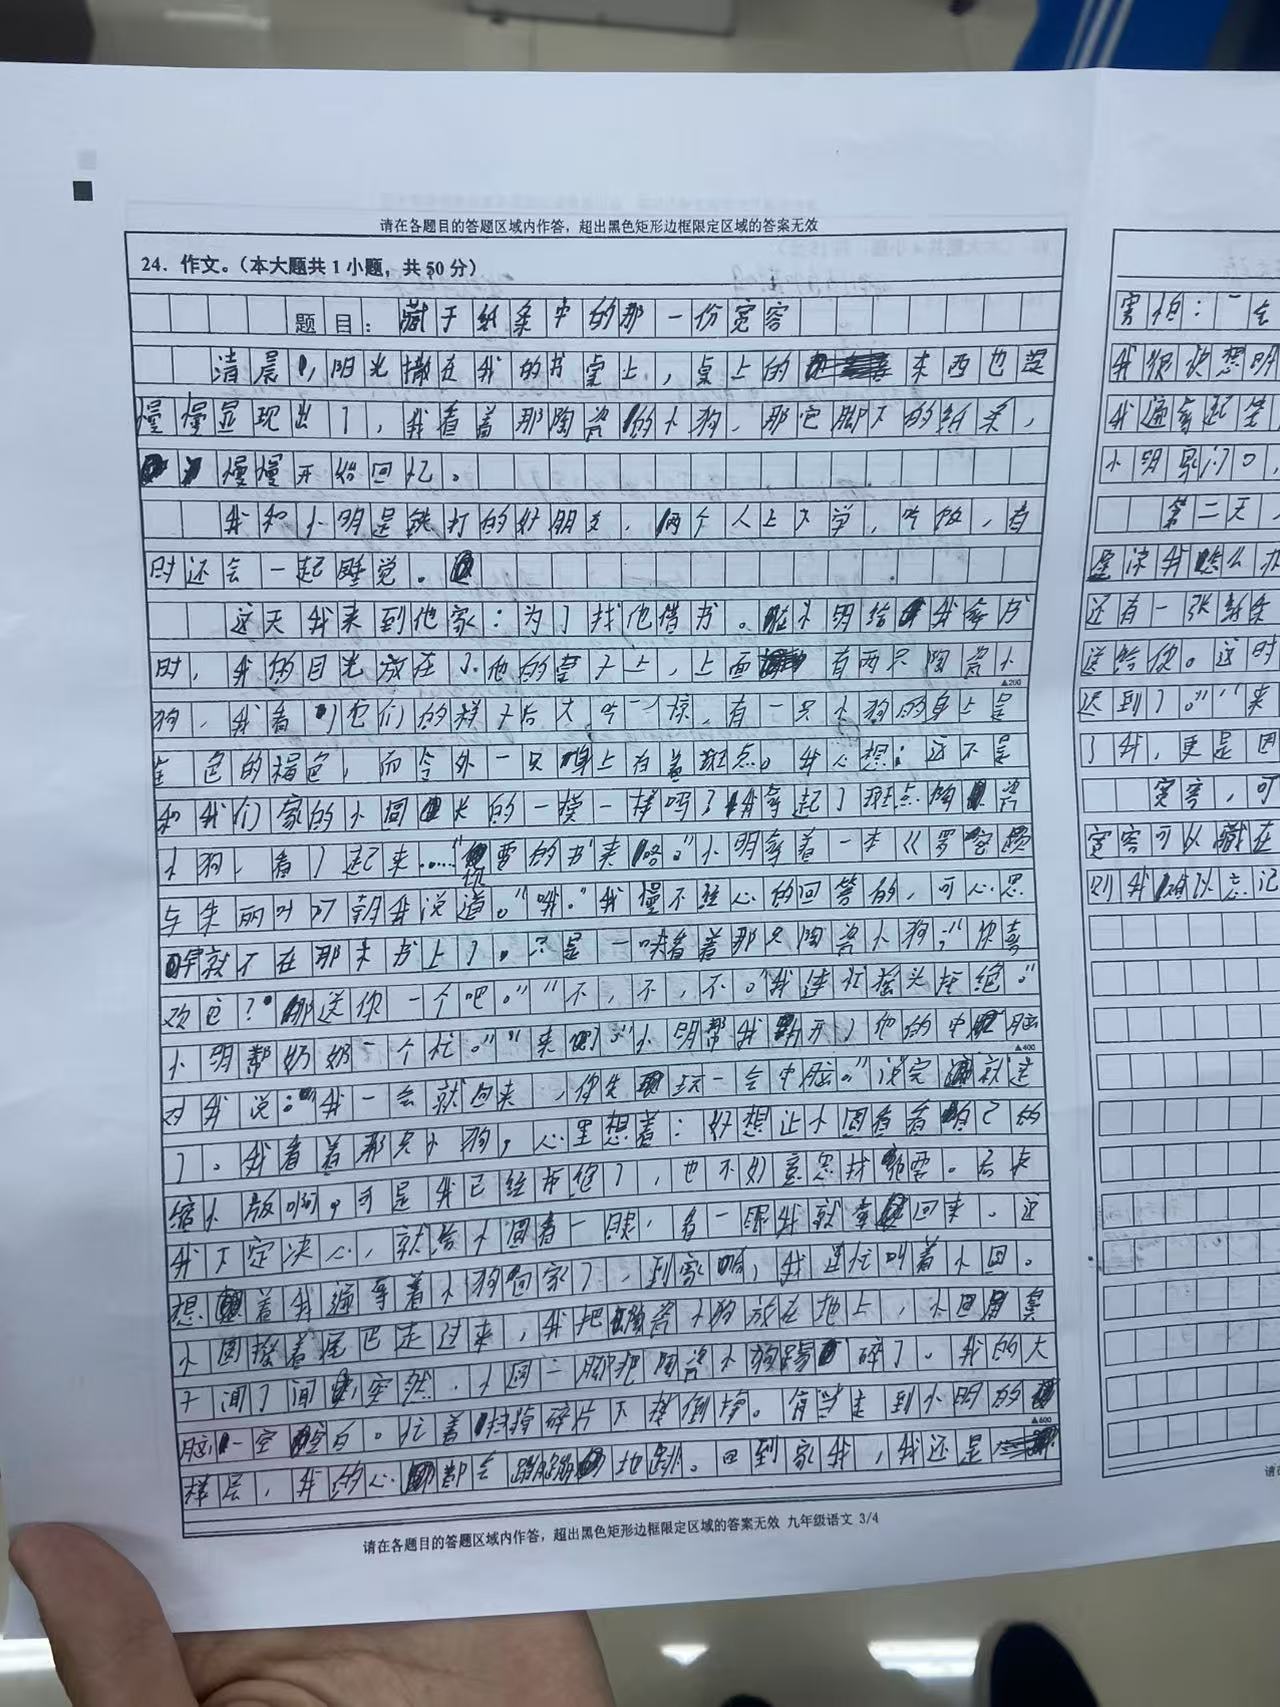 请在各题目的答题区域内作答，超出黑色矩形边框限定区域的答案无效
24．作文。（本大题共 1 小题，共 50 分）
题目：藏于纸条中的那一份宽容
清晨，阳光撒在我的书桌上，桌上的东西也逐
慢慢显现出了，我看着那陶瓷的小狗，那它脚下的纸条，
慢慢开始回忆。
我和小明是铁打的好朋友，俩个人上下学，吃饭，有
时还会一起睡觉。
这天我来到他家：为了找他借书。趁小明给我拿书
时，我的目光放在了他的桌子上，上面有两只陶瓷小
▲200
狗，我看到它们的样子后大吃一惊，有一只小狗的身上是
全色的褐色，而令外一只身上有着斑点。我心想：这不是
和我们家的小圆长的一模一样吗？我拿起了斑点陶瓷
小狗，看了起来……“你要的书来咯。”小明拿着一本《罗密欧
与朱丽叶》朝我说道。“哦。”我慢不经心的回答的，可心思
早就不在那本书上了。只是一味看着那只陶瓷小狗；“你喜
欢它？那送你一个吧。”“不，不，不。”我连忙摇头拒绝。”
小明帮奶奶一个忙。”“来了”小明帮我打开了他的电脑
▲400
对我说：“我一会就回来，你先玩一会电脑。”说完就走
了。我看着那只小狗，心里想着：好想让小圆看看自己的
缩小版啊，可是我已经拒绝了，也不好意思找他要。后来
我下定决心，就给小圆看一眼，看一眼我就拿回来。这
想着我边拿着小狗回家了，到家时，我连忙叫着小圆。
小圆摇着尾巴走过来，我把陶瓷小狗放在地上，小圆用鼻
子闻了闻，突然，小圆一脚把陶瓷小狗踢碎了。我的大
脑一空白。忙着扫掉碎片下楼倒掉。每当走到小明的
▲600
楼层，我的心都会地跳。回到家我，我还是
请在各题目的答题区域内作答，超出黑色矩形边框限定区域的答案无效 九年级语文 3/4
害怕：“会
我很快想明
我遍拿起笔
小明家门口，
第二天，
还有一张纸条
送给你。这时
迟到了。”“来
了我，更是因
宽容，可
宽容可以藏在
则我难以忘记